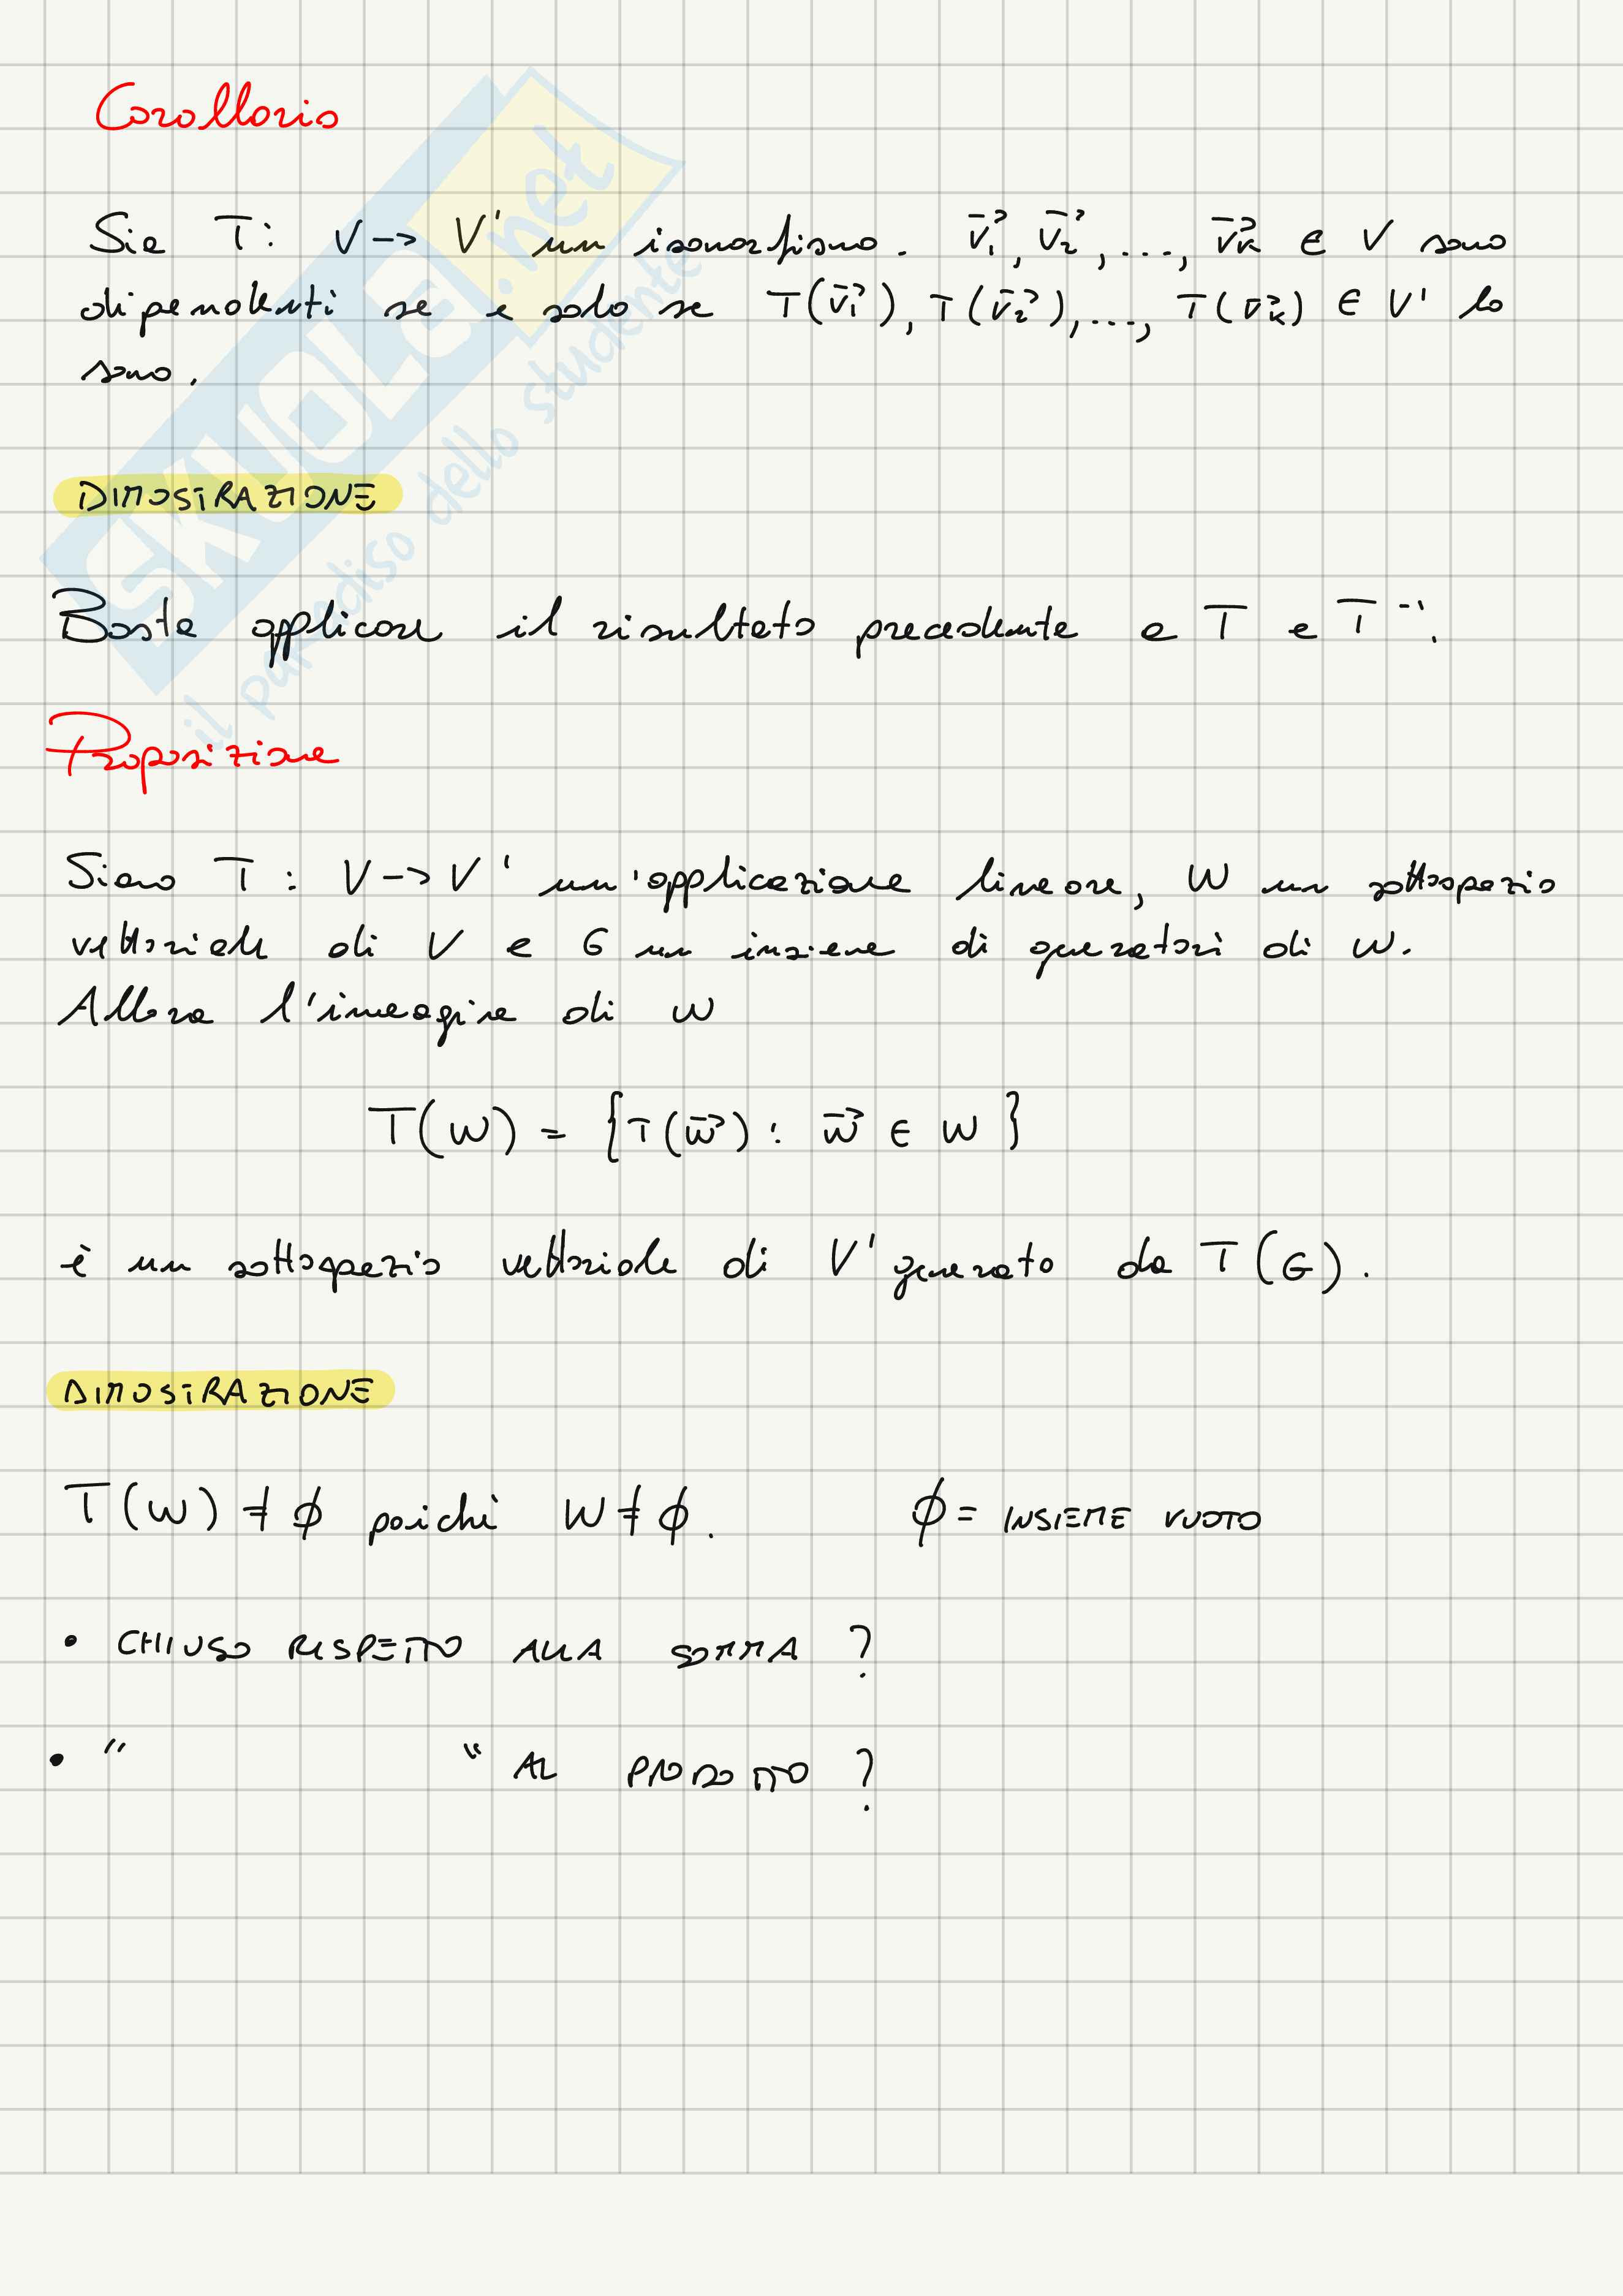 Corollario
Sia T: V -> V' un isomorfismo. v₁⃗, v₂⃗, ..., vₖ⃗ ∈ V sono
dipendenti se e solo se T(v₁⃗), T(v₂⃗), ..., T(vₖ⃗) ∈ V' lo
sono.
DIMOSTRAZIONE
Basta applicare il risultato precedente a T e T⁻¹.
Proposizione
Siano T: V -> V' un'applicazione lineare, W un sottospazio
vettoriale di V e G un insieme di generatori di W.
Allora l'immagine di W
T(W) = {T(w⃗): w⃗ ∈ W}
è un sottospazio vettoriale di V' generato da T(G).
DIMOSTRAZIONE
T(W) ≠ ϕ poiché W ≠ ϕ. ϕ = INSIEME VUOTO
• CHIUSO RISPETTO ALLA SOMMA ?
• " " AL PRODOTTO ?
SKUOLA.net
il paradiso dello studente